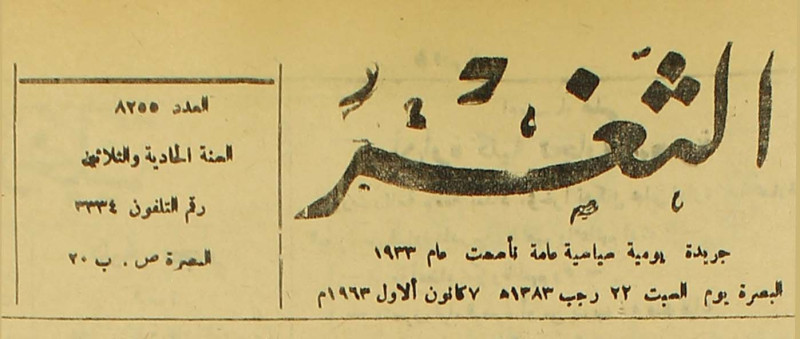 الثغر
جريدة يومية سياسية عامة تأسست عام ١٩٣٣
البصرة يوم السبت ٢٢ رجب ١٣٨٣ه ٧ كانون الاول ١٩٦٣م
العدد ٨٢٥٥
السنة الحادية والثلاثين
رقم التلفون ٣٣٣٤
البصرة ص . ب ٢٠